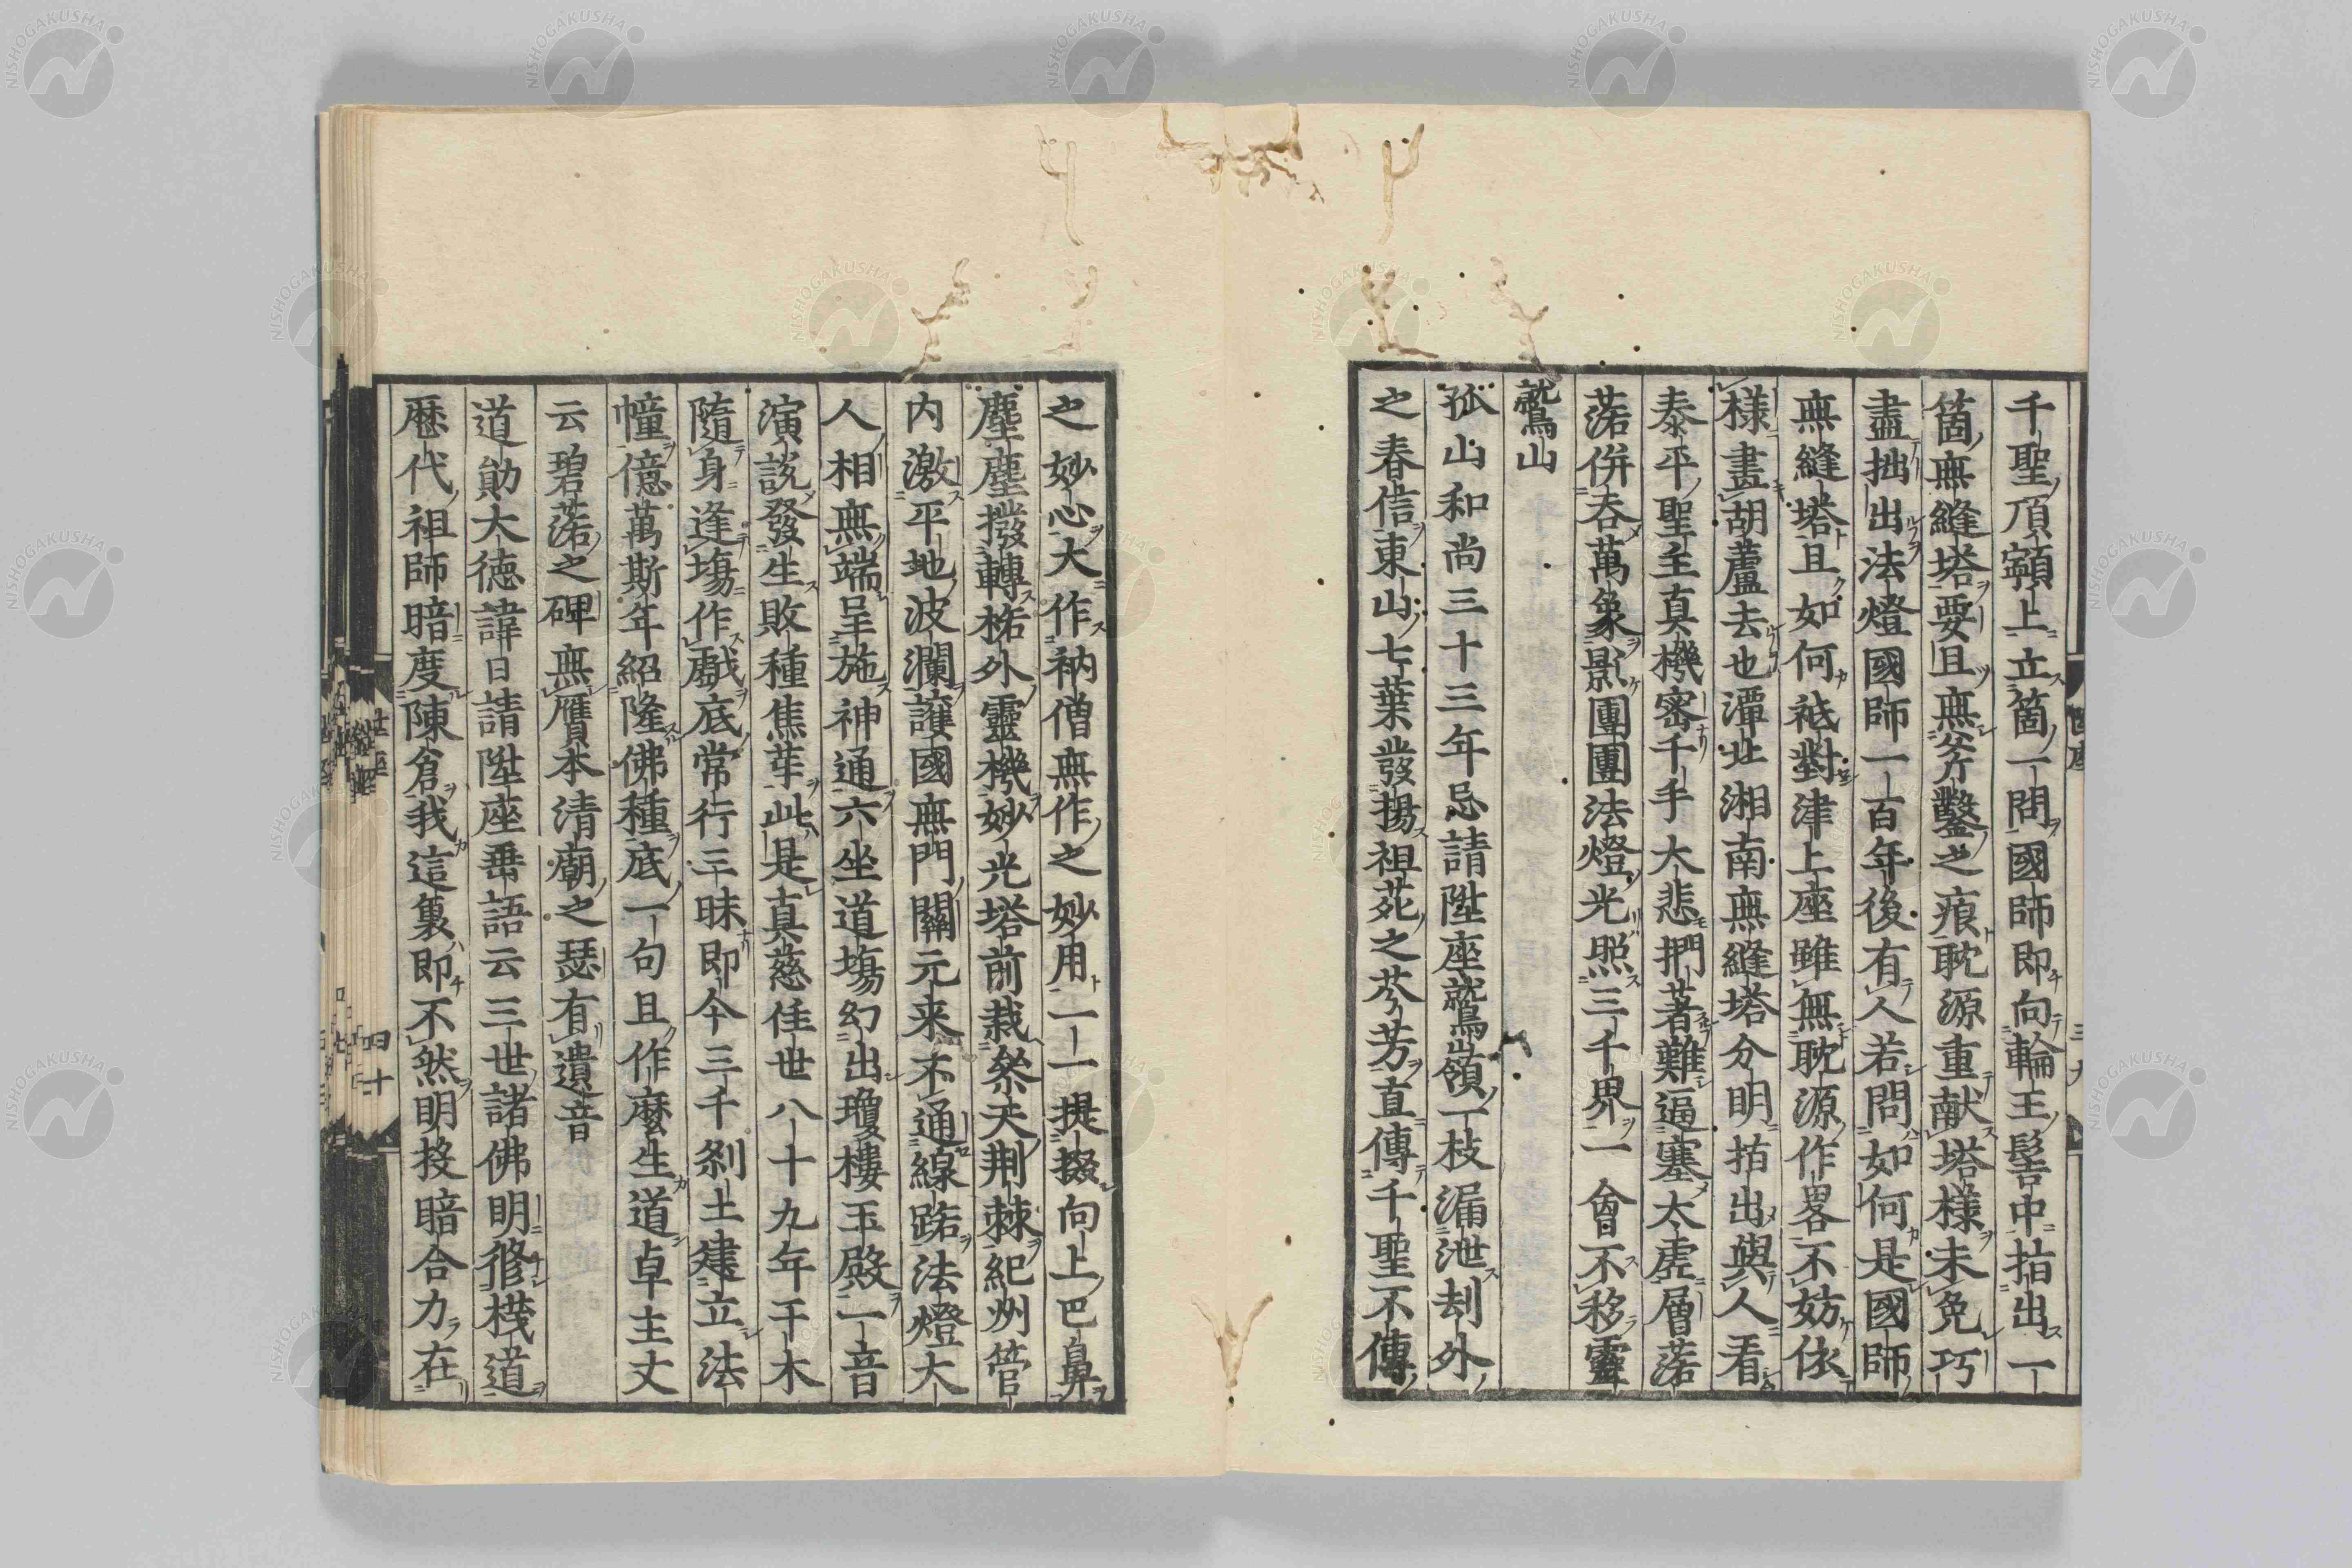 千聖頂𩕳上立箇一問國師即向輪王髻中指出一
箇無縫塔要且無斧鑿之痕耽源重献塔樣未免巧
盡拙出法燈國師一百年後有人若問如何是國師
無縫塔且如何祗對津上座雖無耽源作畧不妨依
樣畫胡蘆去也潭北湘南無縫塔分明拈出與人看
泰平聖主真機密千手大悲捫著難逼塞太虚層落
落併吞萬象影團團法燈光照三千界一會不移靈
鷲山
孤山和尚三十三年忌請陞座鷲嶺一枝漏泄刧外
之春信東山七葉發揚祖苑之芬芳直傳千聖不傳
之妙心大作衲僧無作之妙用一一提掇向上巴鼻
塵塵撥轉格外靈機妙光塔前栽祭天荆棘紀州管
内激平地波瀾護國無門關元来不通線路法燈大
人相無端呈施神通六坐道塲幻出瓊樓玉殿一音
演說發生敗種焦芽此是真慈住世八十九年干木
隨身逢塲作戲底常行三昧即今三千刹土建立法
幢億萬斯年紹隆佛種底一句且作麼生道卓主丈
云碧落之碑無贋本清廟之瑟有遺音
道勛大德諱日請陞座垂語云三世諸佛明修棧道
歷代祖師暗度陳倉我這裏即不然明投暗合力在
四十
NISHOGAKUSHA